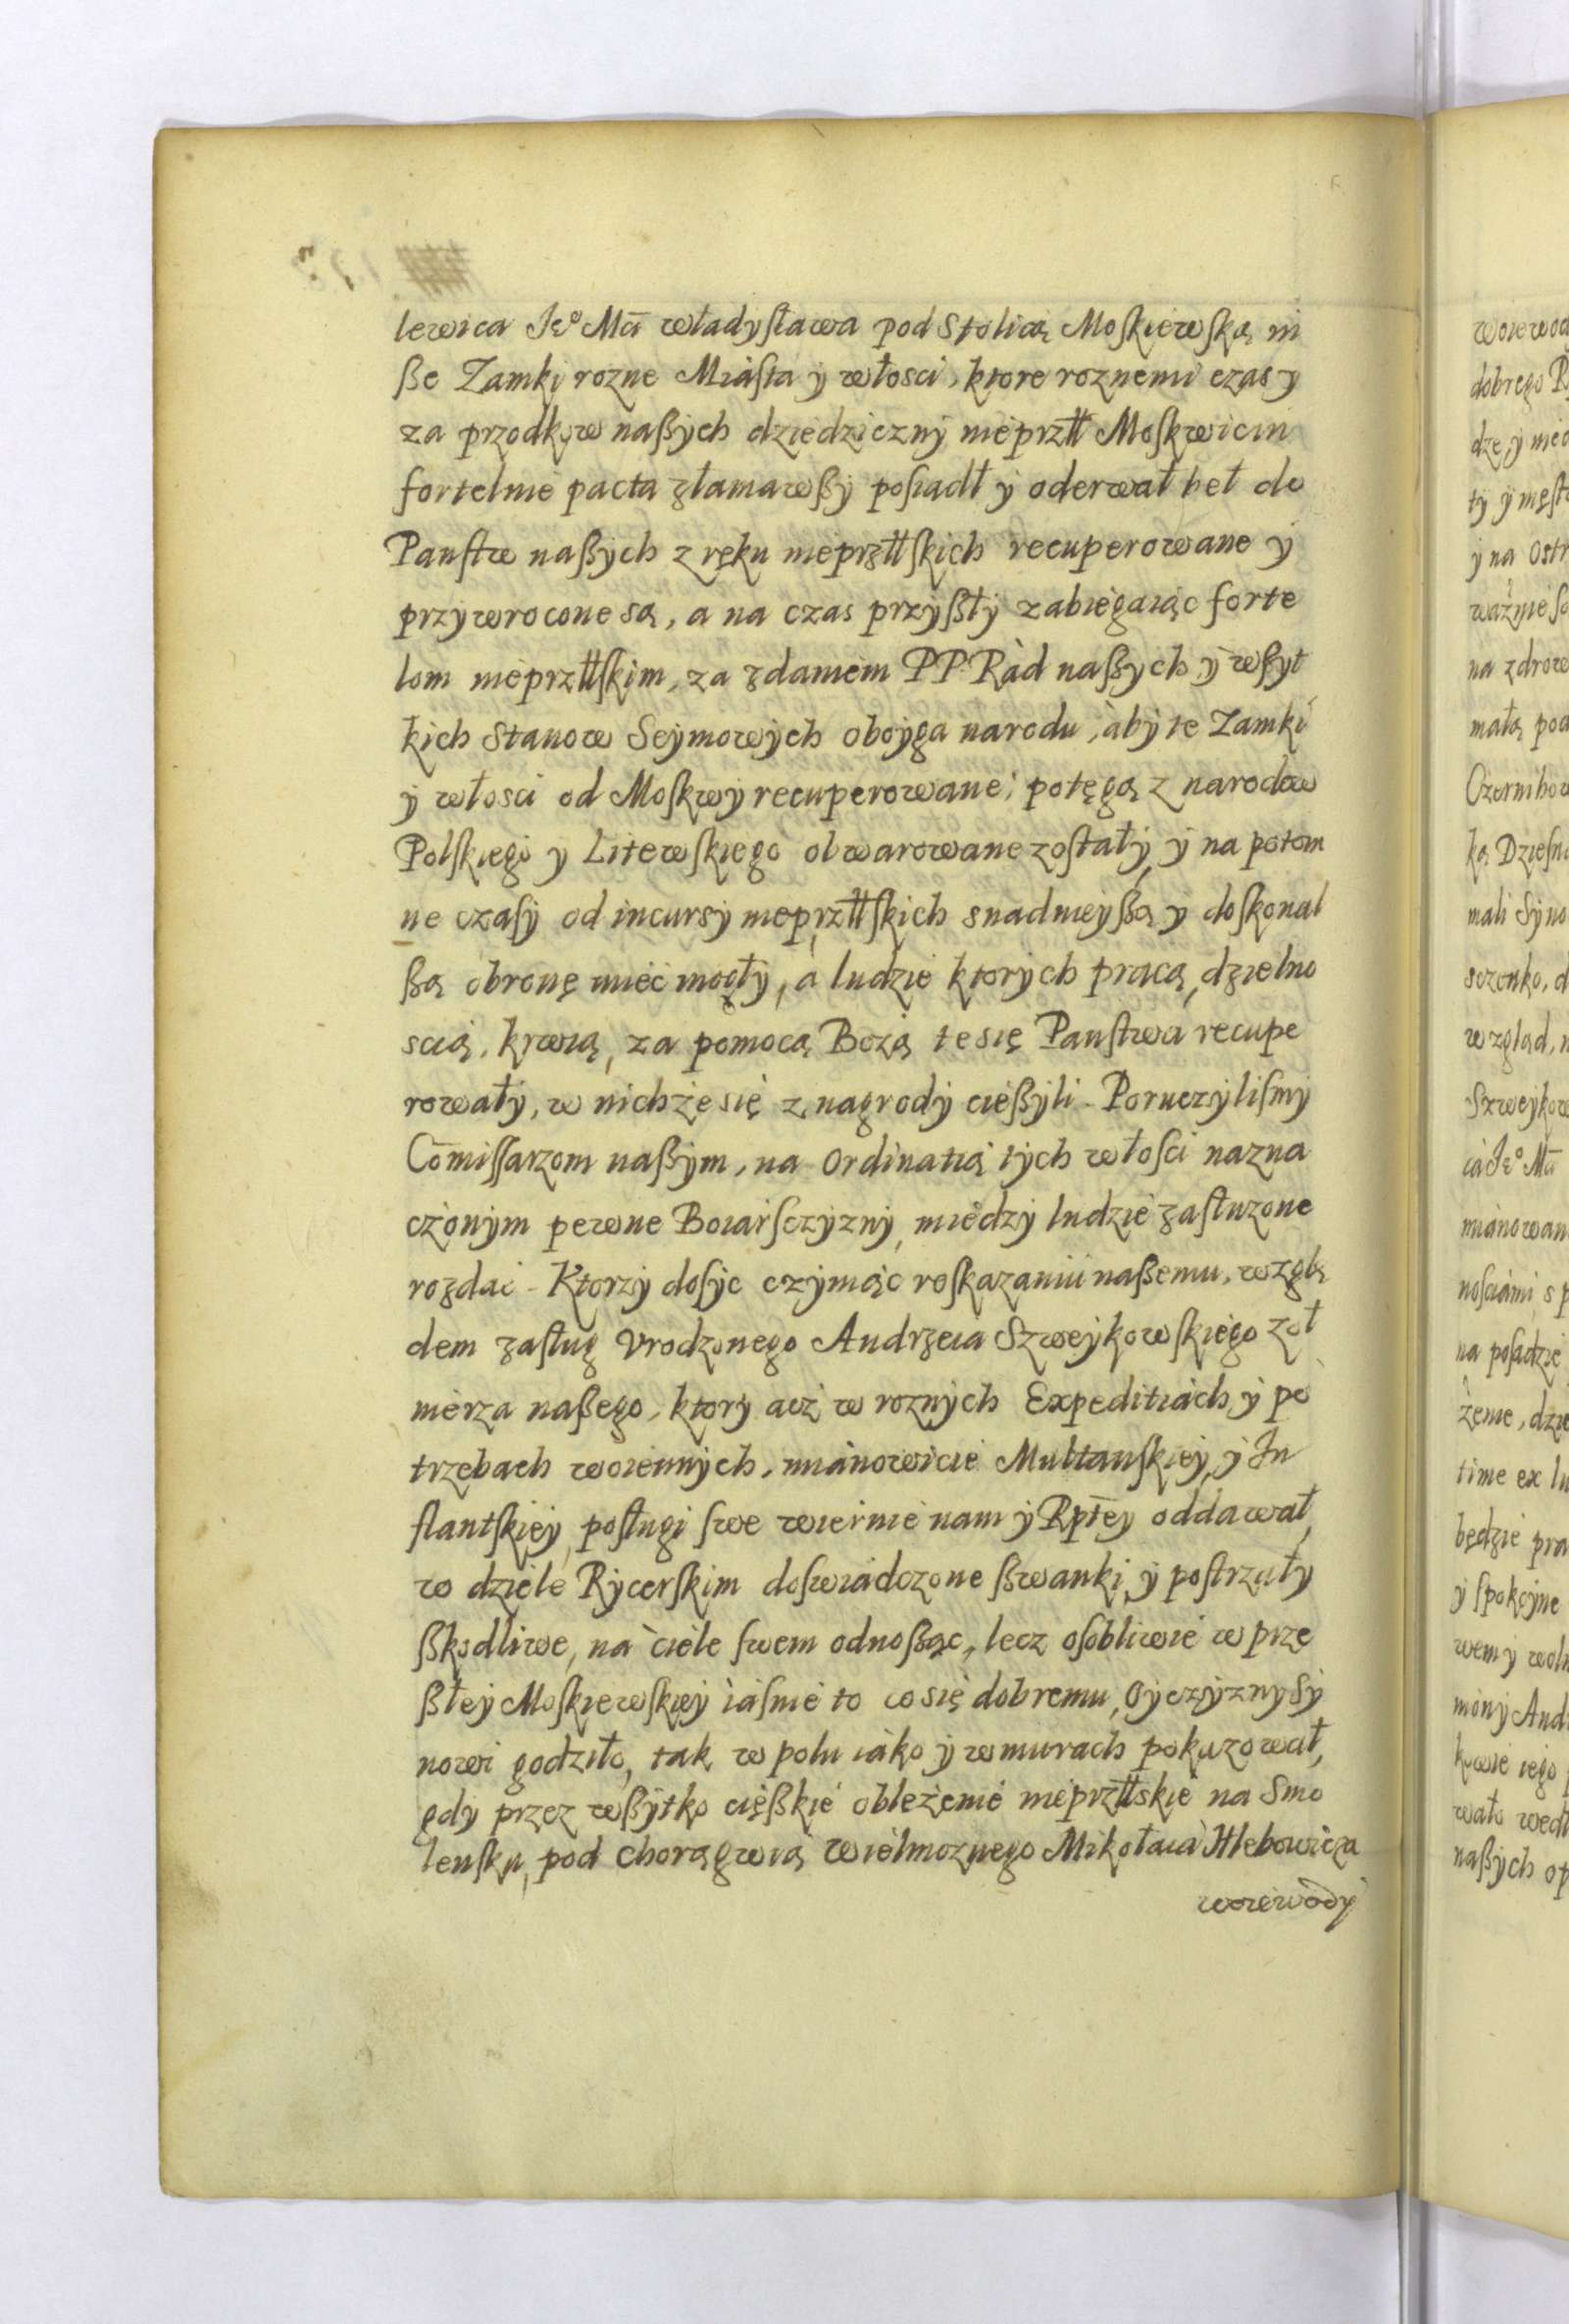 lewica Je⁰ Mci Władysława pod Stolicą Moskiewską ni
ße Zamki rozne Miasta y włosci, ktore roznemi czasy
za przodkow naßych dziedziczny nieprzłł Moskwicin
fortelnie pacta złamawßy posiadł y oderwał beł do
Panstw naßych z ręku nieprzłłskich recuperowane y
przywrocone są, a na czas przyßły zabiegaiąc forte
lom nieprzłłskim, za zdaniem PP Rad naßych y wßyt
kich Stanow Seymowych oboyga narodu, aby te Zamki
y włosci od Moskwy recuperowane, potęgą z narodow
Polskiego y Litewskiego obwarowane zostały, y na potom
ne czasy od incursy nieprzłłskich snadnieyßą y doskonal
ßą obronę mieć mogły, a ludzie ktorych pracą, dzielno
scią, krwią, za pomocą Bożą te się Panstwa recupe
rowały, w nichże się z nagrody cießyli. Poruczylismy
Com̄issarzom naßym, na ordinatią tych włosci nazna
czonym pewne Boiarsczyzny, miedzy ludzie zasłuzone
rozdać. Ktorzy dosyc czyniąc roskazaniu naßemu, wzglę
dem zasług Vrodzonego Andrzeia Szweykowskiego żoł
nierza naßego, ktory acz w roznych Expeditiach, y po
trzebach woiennych, mianowicie Multanskiey, y In
flantskiey, posługi swe wiernie nam y Rptey oddawał,
w dziele Rycerskim doswiadczone ßwanki, y postrzały
ßkodliwe, na ciele swem odnoßąc, lecz osobliwie w prze
ßłey Moskiewskiey iasnie to co się dobremu, Oyczyzny Sy
nowi godziło, tak w polu iako y w murach pokazował,
gdy przez wßytko cięßkie oblężenie nieprzłłskie na Smo
lensku, pod chorągwią Wielmoznego Mikołaia Hlebowicza
woiewody
woiewod
dobrego
na zdrow
mianowan
time ex
będzie
naßych